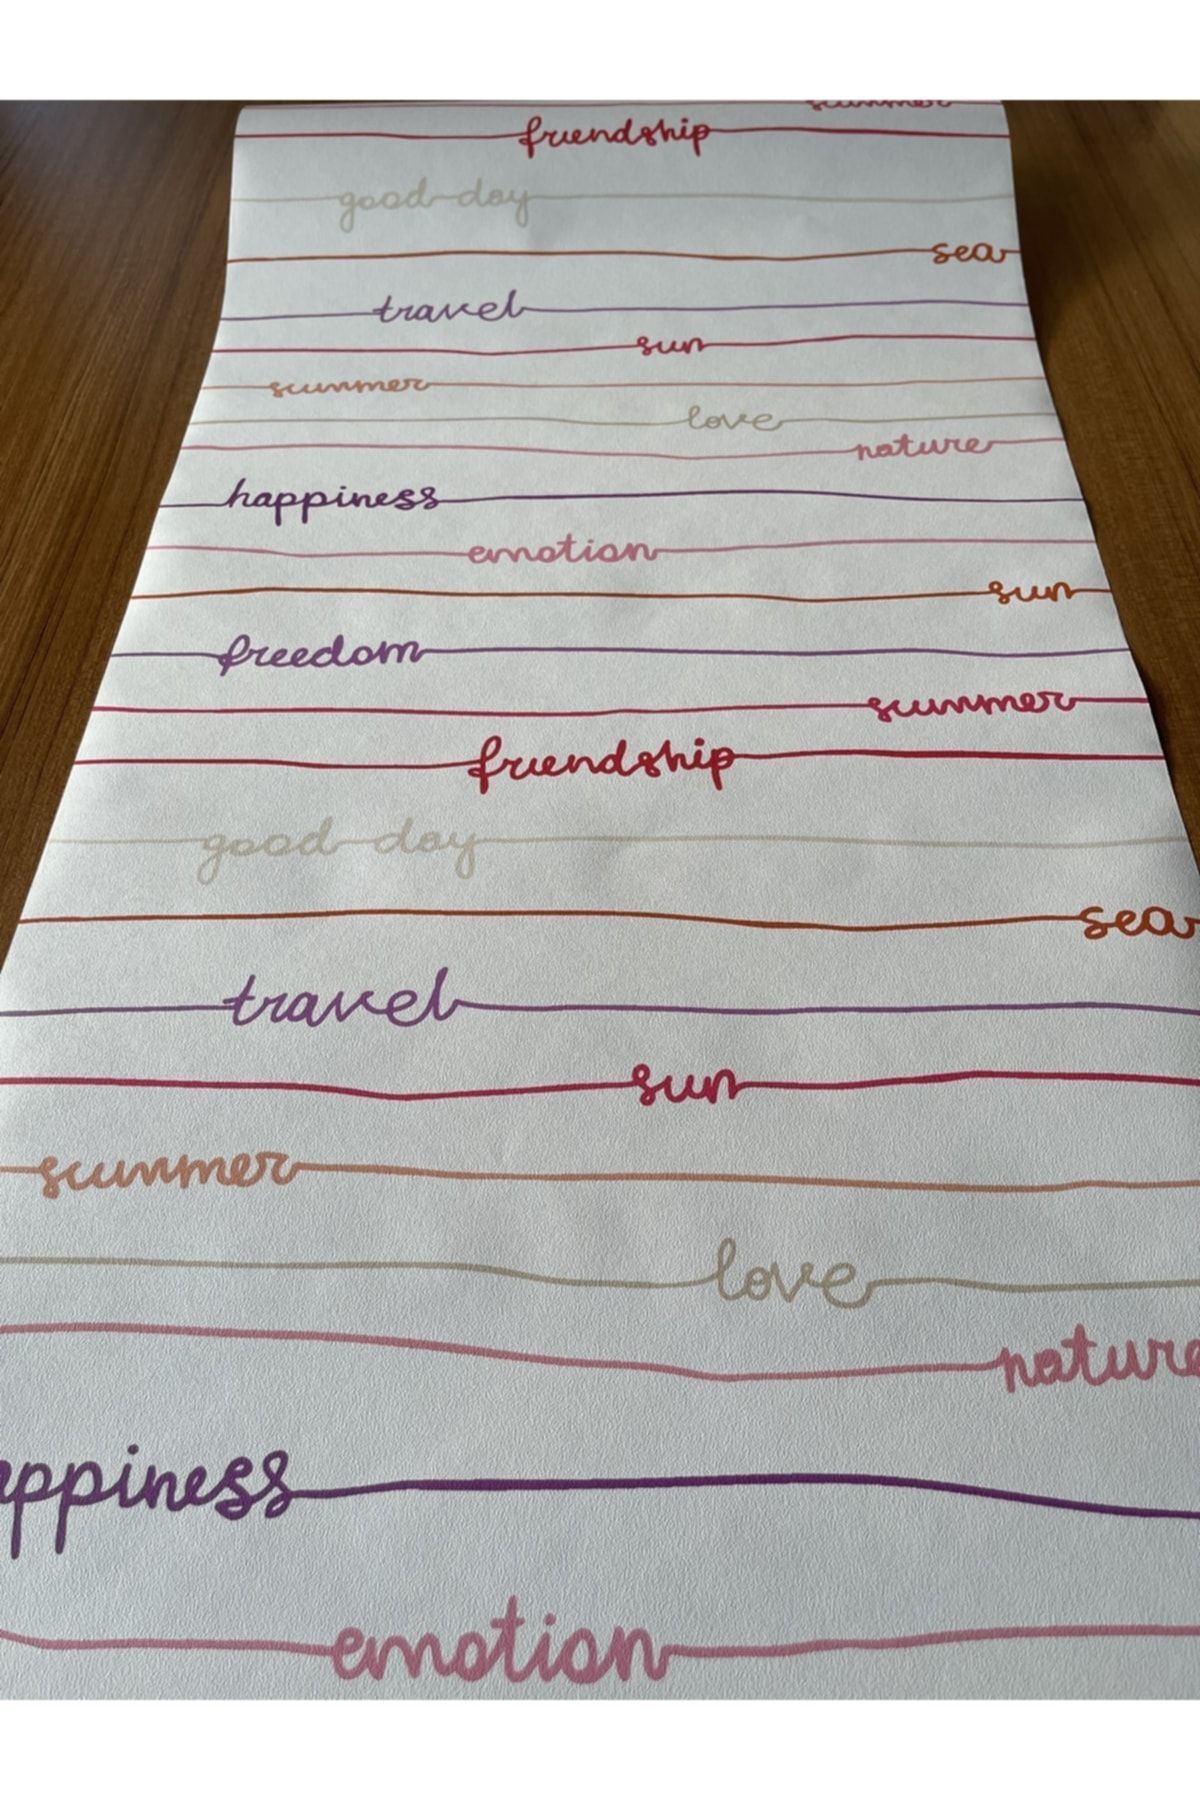 summer
friendship
good day
sea
travel
sun
summer
love
nature
happiness
emotion
sun
freedom
summer
friendship
good day
sea
travel
sun
summer
love
nature
appiness
emotion